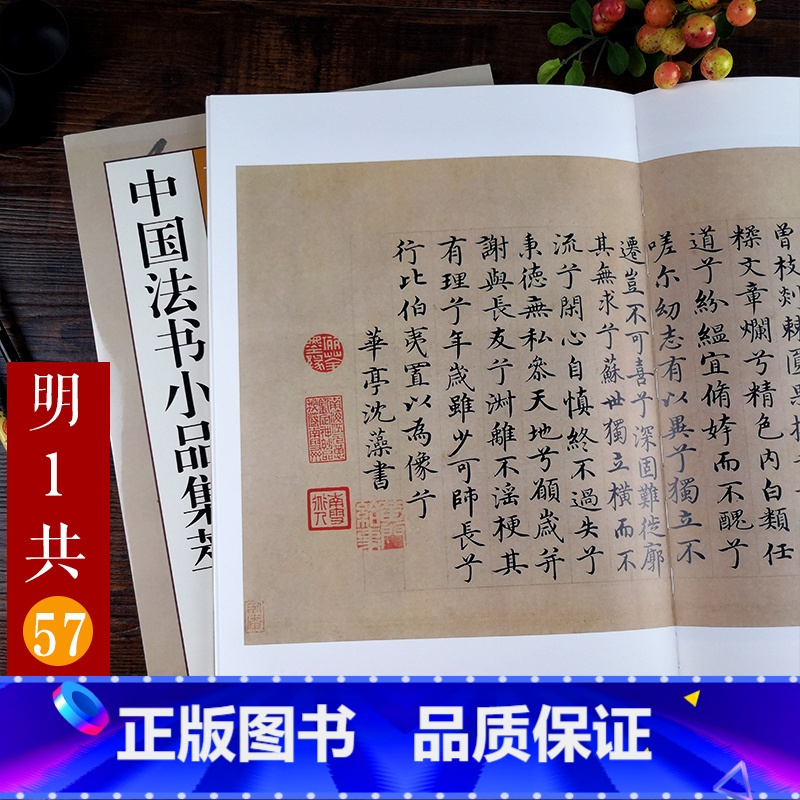 中国法书小品集萃
曾枝剡棘圓果
糅文章爛兮精色内白類任
道兮紛緼宜脩姱而不醜兮
嗟尔幼志有以異兮獨立不
遷豈不可喜兮深固難徙廓
其無求兮蘇世獨立横而不
流兮閑心自慎終不過失兮
秉德無私叅天地兮願歲并
謝與長友兮淑離不滛梗其
有理兮年歲雖少可師長兮
行比伯夷置以為像兮
華亭沈藻書
明1共57
正版图书 品质保证